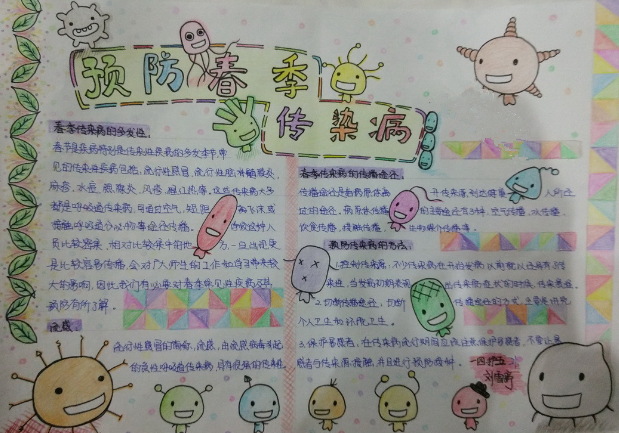 预防春季
传染病
春季传染病的多发性
春节是疾病特别是传染性疾病的多发季节常
见的传染性疾病包括,流行性感冒,流行性脑脊髓膜炎,
麻疹,水痘,腮腺炎,风疹,猩红热等,这些传染病大多
都是呼吸道传染病,可通过空气,短距离飞沫或
接触呼吸道分泌物等途径传播,
员比较密集,相对比较集中的地方,一旦出现更
是比较容易传播,会对广大师生的工作和学习带来较
大的影响,因此我们有必要对春季常见性疾病及其
预防有所了解。
流感
流行性感冒简称,流感,由流感病毒引起
的急性呼吸道传染病,具有很强的传染性
春季传染病的传播途径
传播途径是指病原体离开传染源,到达健康人所经
过的途径,病原体传播的主要途径有3种,空气传播,水传播,
饮食传播,接触传播,生物媒介传播等。
预防传染病的方法
1.控制传染源,不少传染病在开始发病以前就以经具有了传
染性,当发病初期表现出传染病症状的时候,传染最强。
2.切断传播途径,切断传播途径的方式,主要是讲究
个人卫生和环境卫生。
3.保护易感者,在传染病流行期间应该注意保护易感者,不要让易
感者与传染源接触,并且进行预防接种。